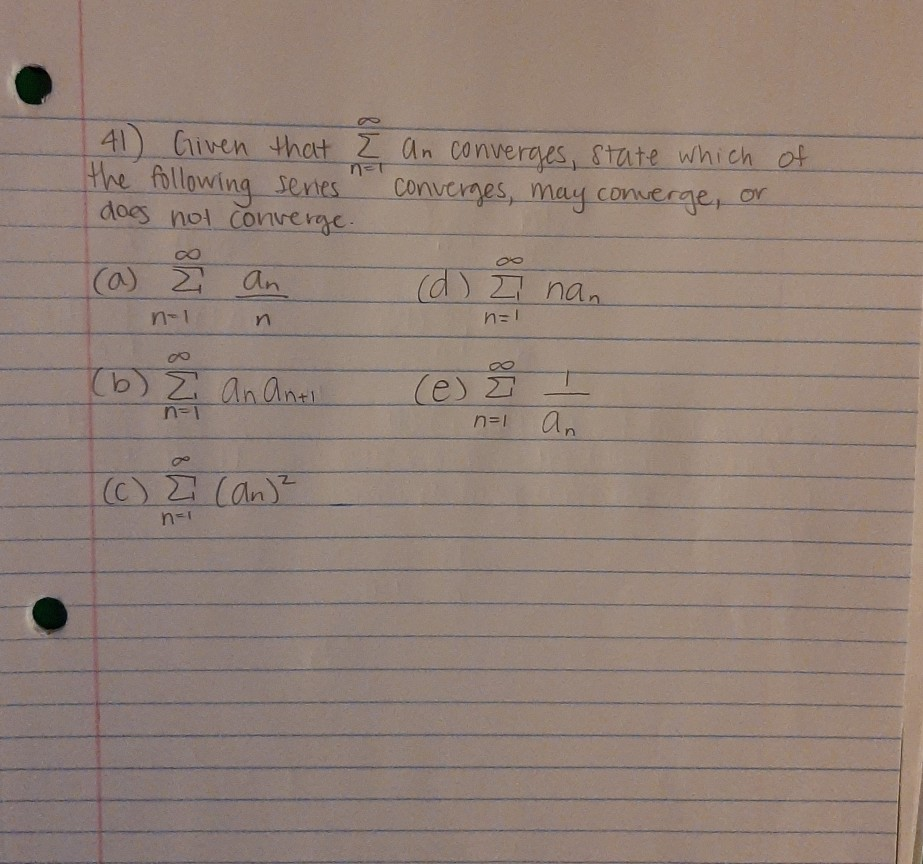 41) Given that ∞Σn=1 an converges, state which of
the following series converges, may converge, or
does not converge.
(a) ∞Σn=1 an/n
(d) ∞Σn=1 nan
(b) ∞Σn=1 an an+1
(e) ∞Σn=1 1/an
(c) ∞Σn=1 (an)²